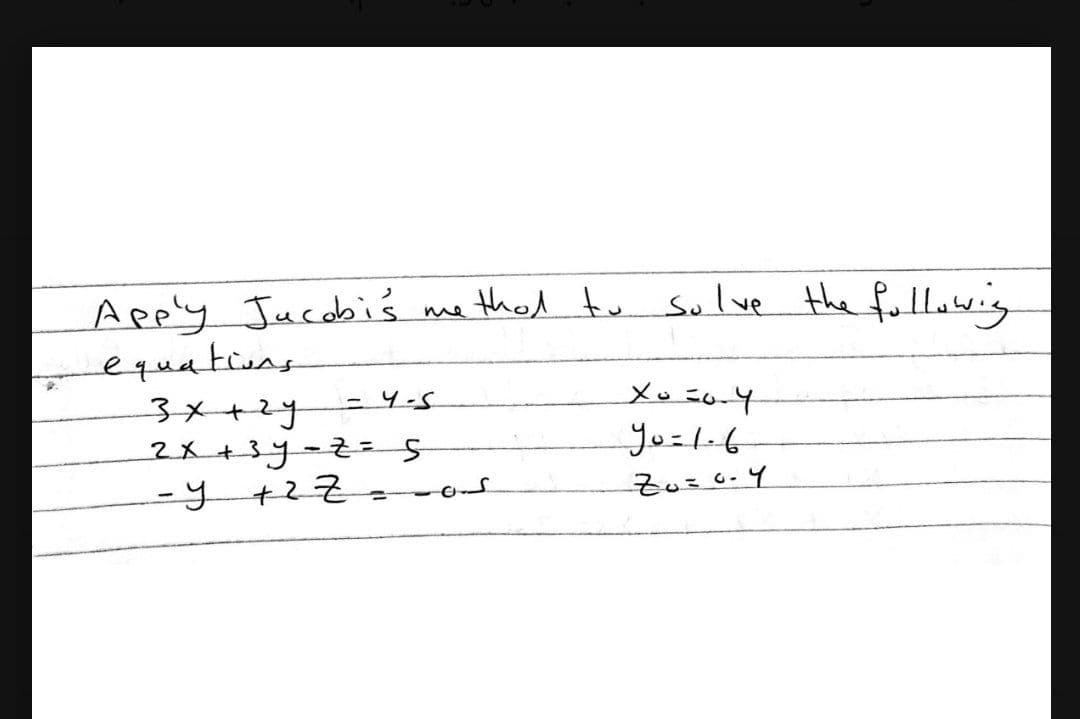 Apply Jacobi's method to solve the followig
equations
3x + 2y = 4.5 x0 = 0.4
2x + 3y - z = 5 y0 = 1.6
-y + 2z = -0.5 z0 = 0.4